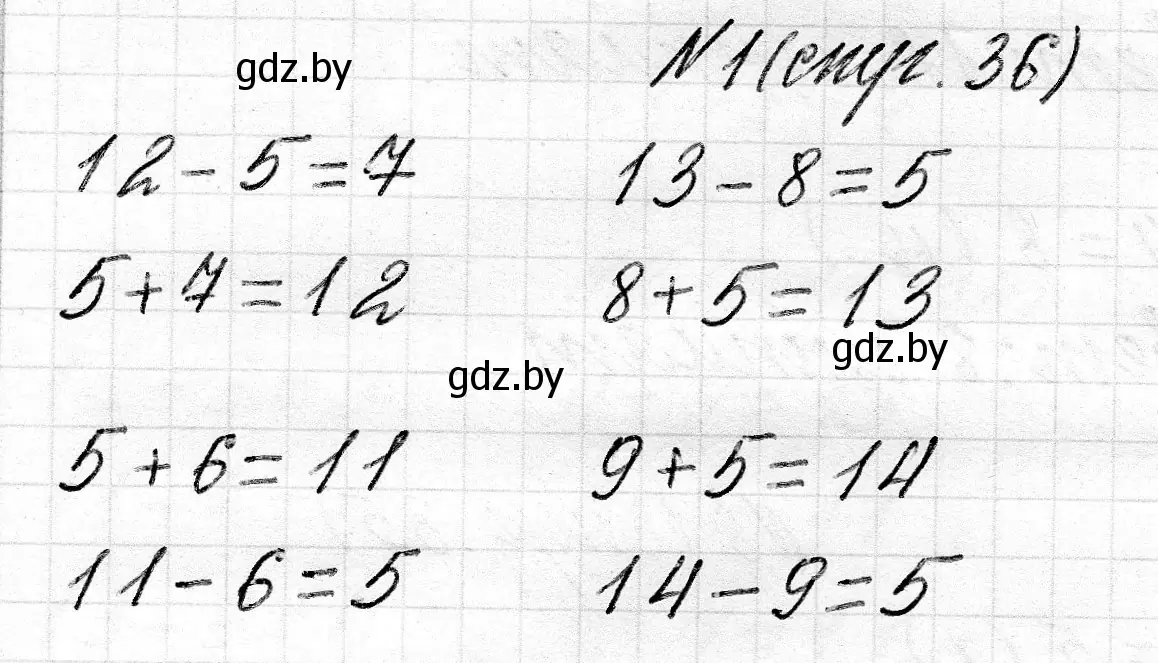 gdz.by №1 (стр. 36)
12 - 5 = 7 13 - 8 = 5
5 + 7 = 12 8 + 5 = 13
gdz.by gdz.by
5 + 6 = 11 9 + 5 = 14
11 - 6 = 5 14 - 9 = 5